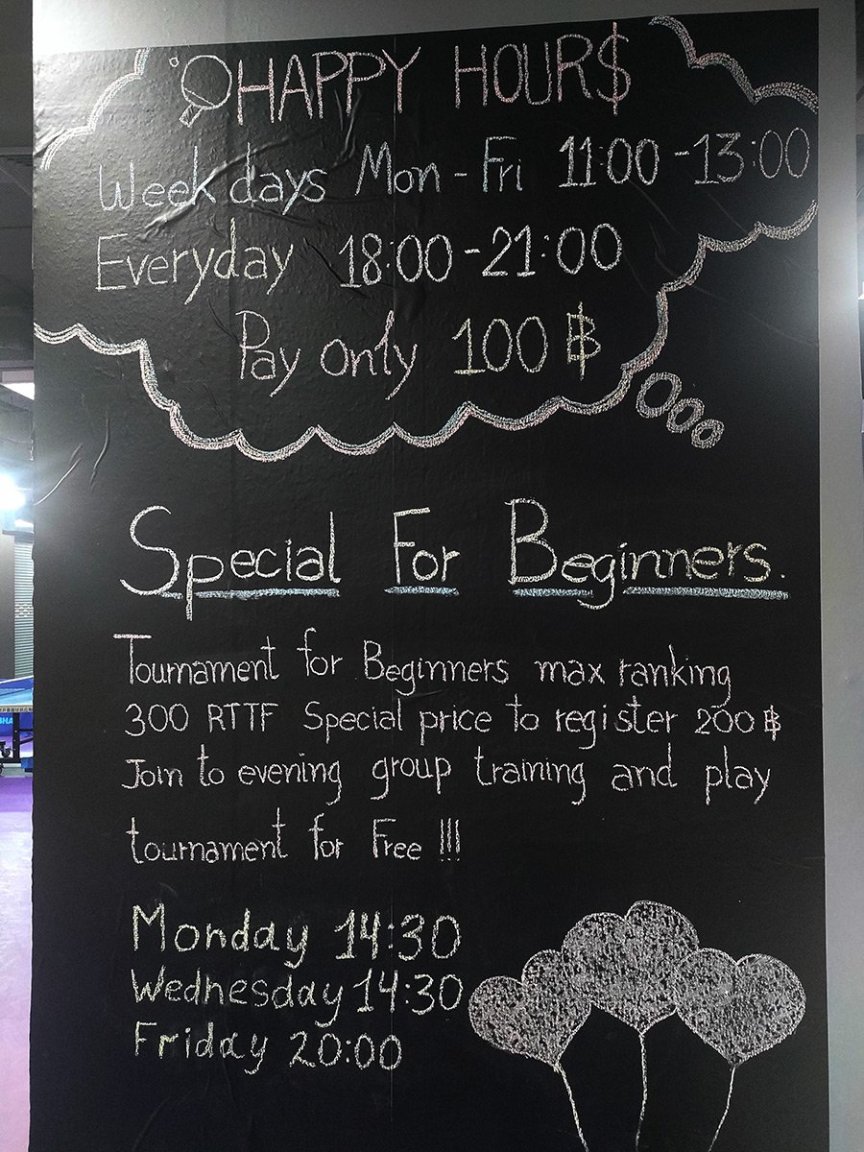 HAPPY HOUR$
Week days Mon - Fri 11:00 - 13:00
Everyday 18:00 - 21:00
Pay only 100 ฿
Special For Beginners.
Tournament for Beginners max ranking
300 RTTF Special price to register 200 ฿
Join to evening group training and play
tournament for Free !!!
Monday 14:30
Wednesday 14:30
Friday 20:00